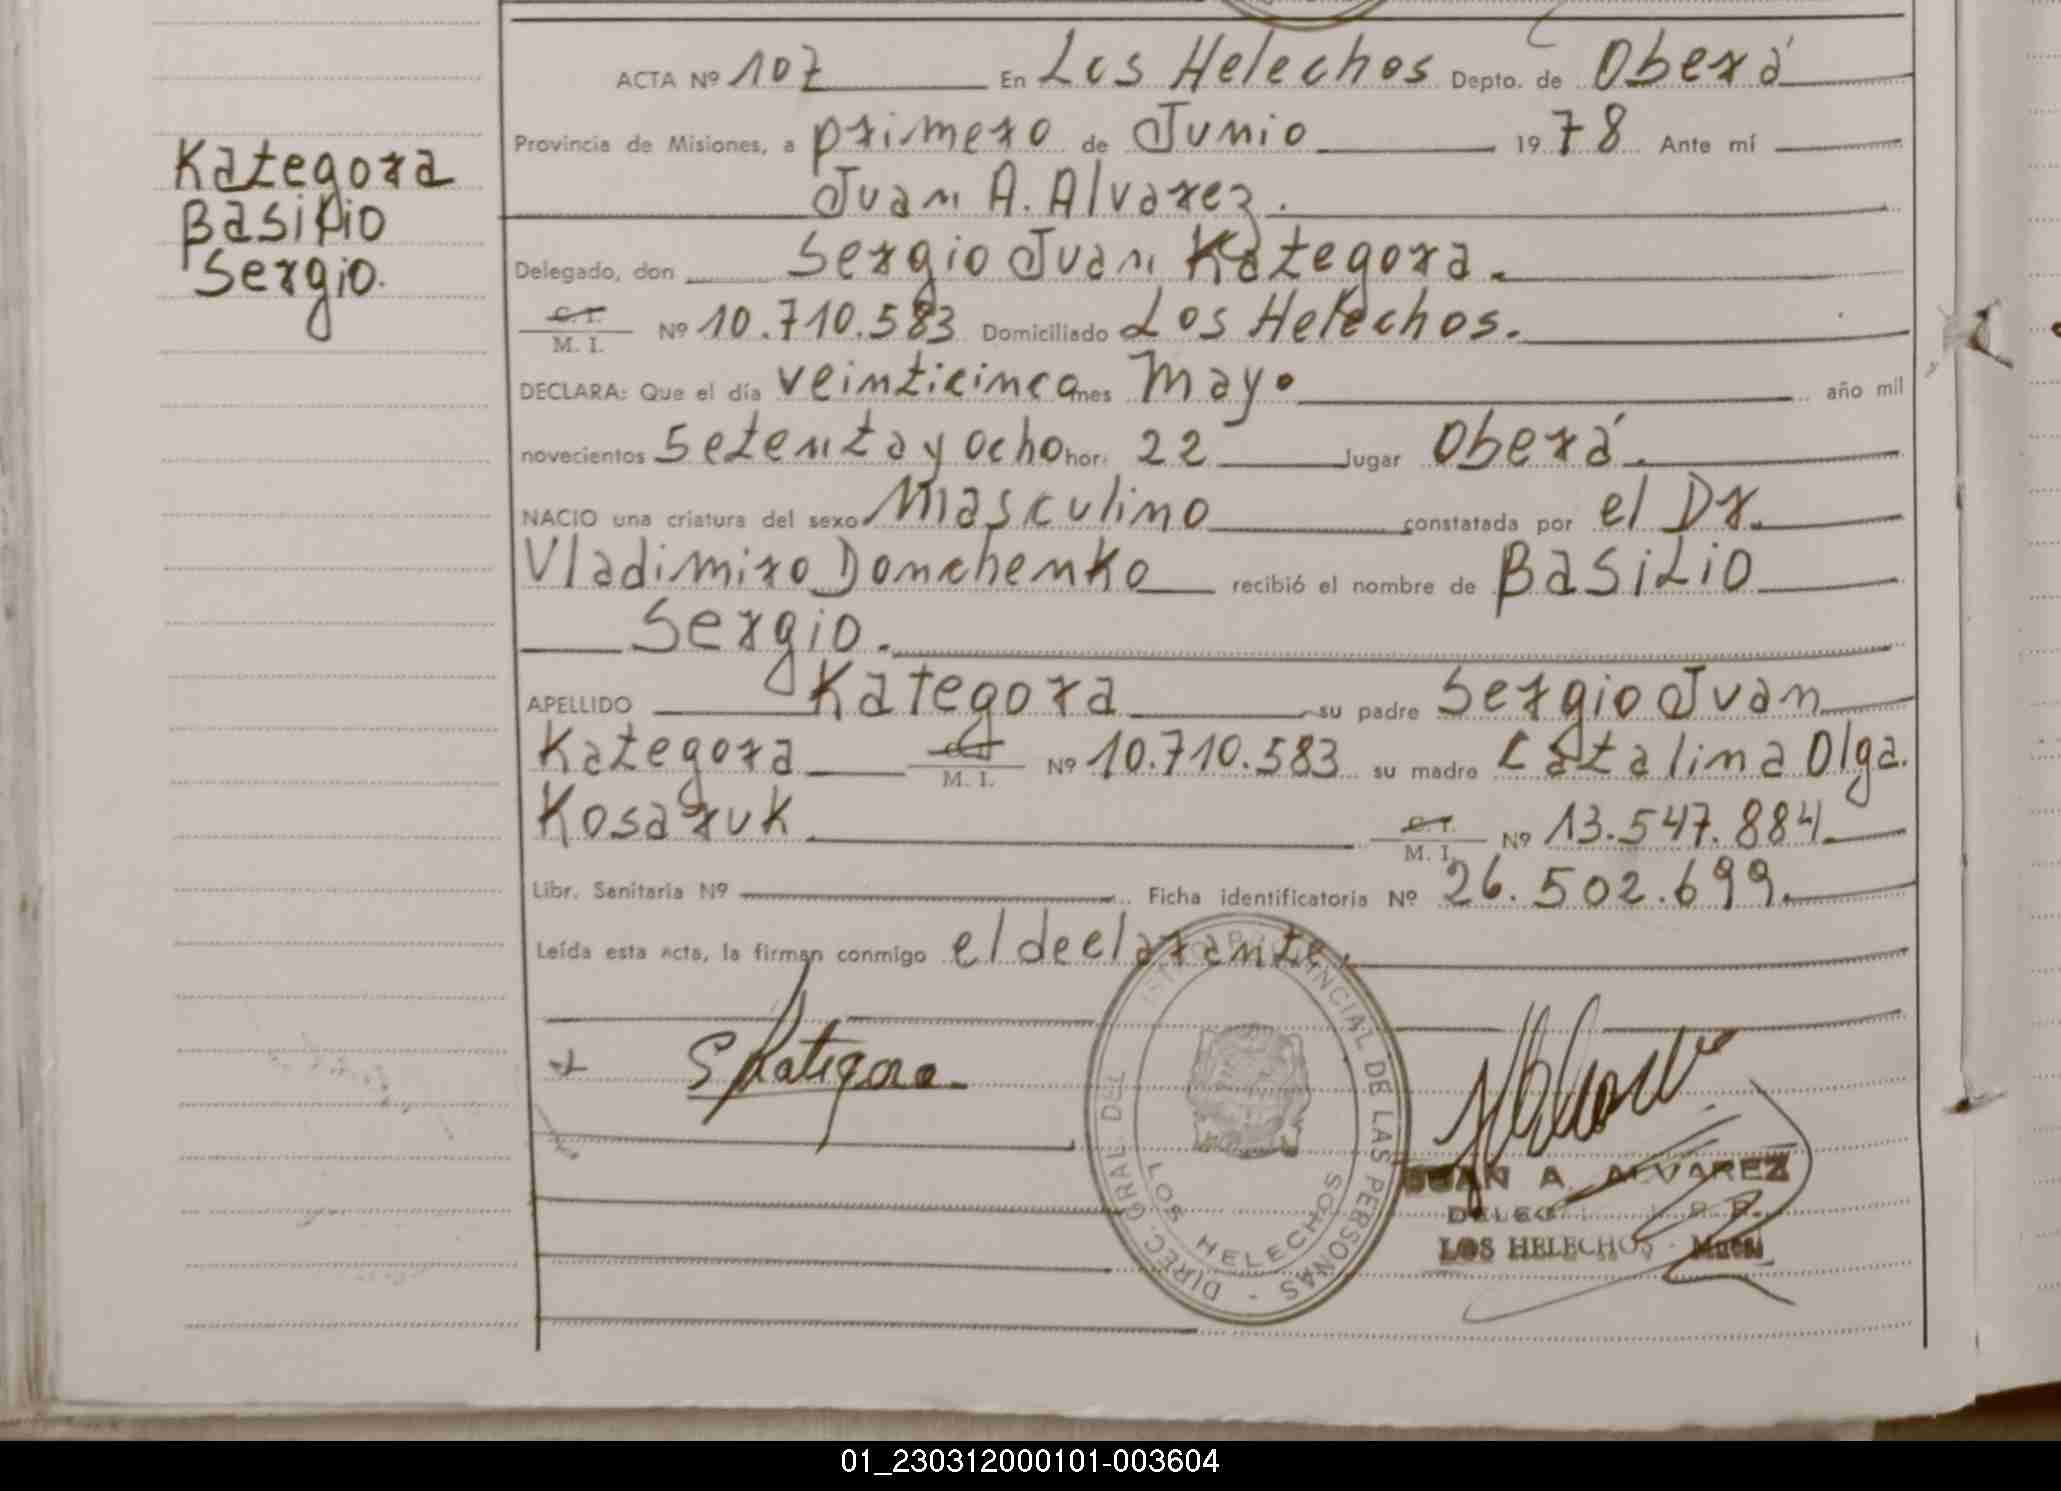 Kategora
Basilio
Sergio.
ACTA Nº 107 En Los Helechos Depto. de Oberá
Provincia de Misiones, a primero de Junio 1978 Ante mí
Juan A. Alvarez.
Delegado, don Sergio Juan Kategora.
C. I.
M. I. Nº 10.710.583 Domiciliado Los Helechos.
DECLARA: Que el día veinticinco mes Mayo año mil
novecientos Setenta y ocho hor. 22 lugar Oberá.
NACIO una criatura del sexo Masculino constatada por el Dr.
Vladimiro Donchenko recibió el nombre de Basilio
Sergio.
APELLIDO Kategora su padre Sergio Juan
Kategora M. I. Nº 10.710.583 su madre Catalina Olga.
Kosaruk C. I. M. I. Nº 13.547.884
Libr. Sanitaria Nº Ficha identificatoria Nº 26.502.699.
Leída esta acta, la firman conmigo el declarante.
S Kategora
DIREC. GRAL DEL PROVINCIAL DE LAS PERSONAS - LOS HELECHOS
JUAN A. ALVAREZ
LOS HELECHOS
01_230312000101-003604